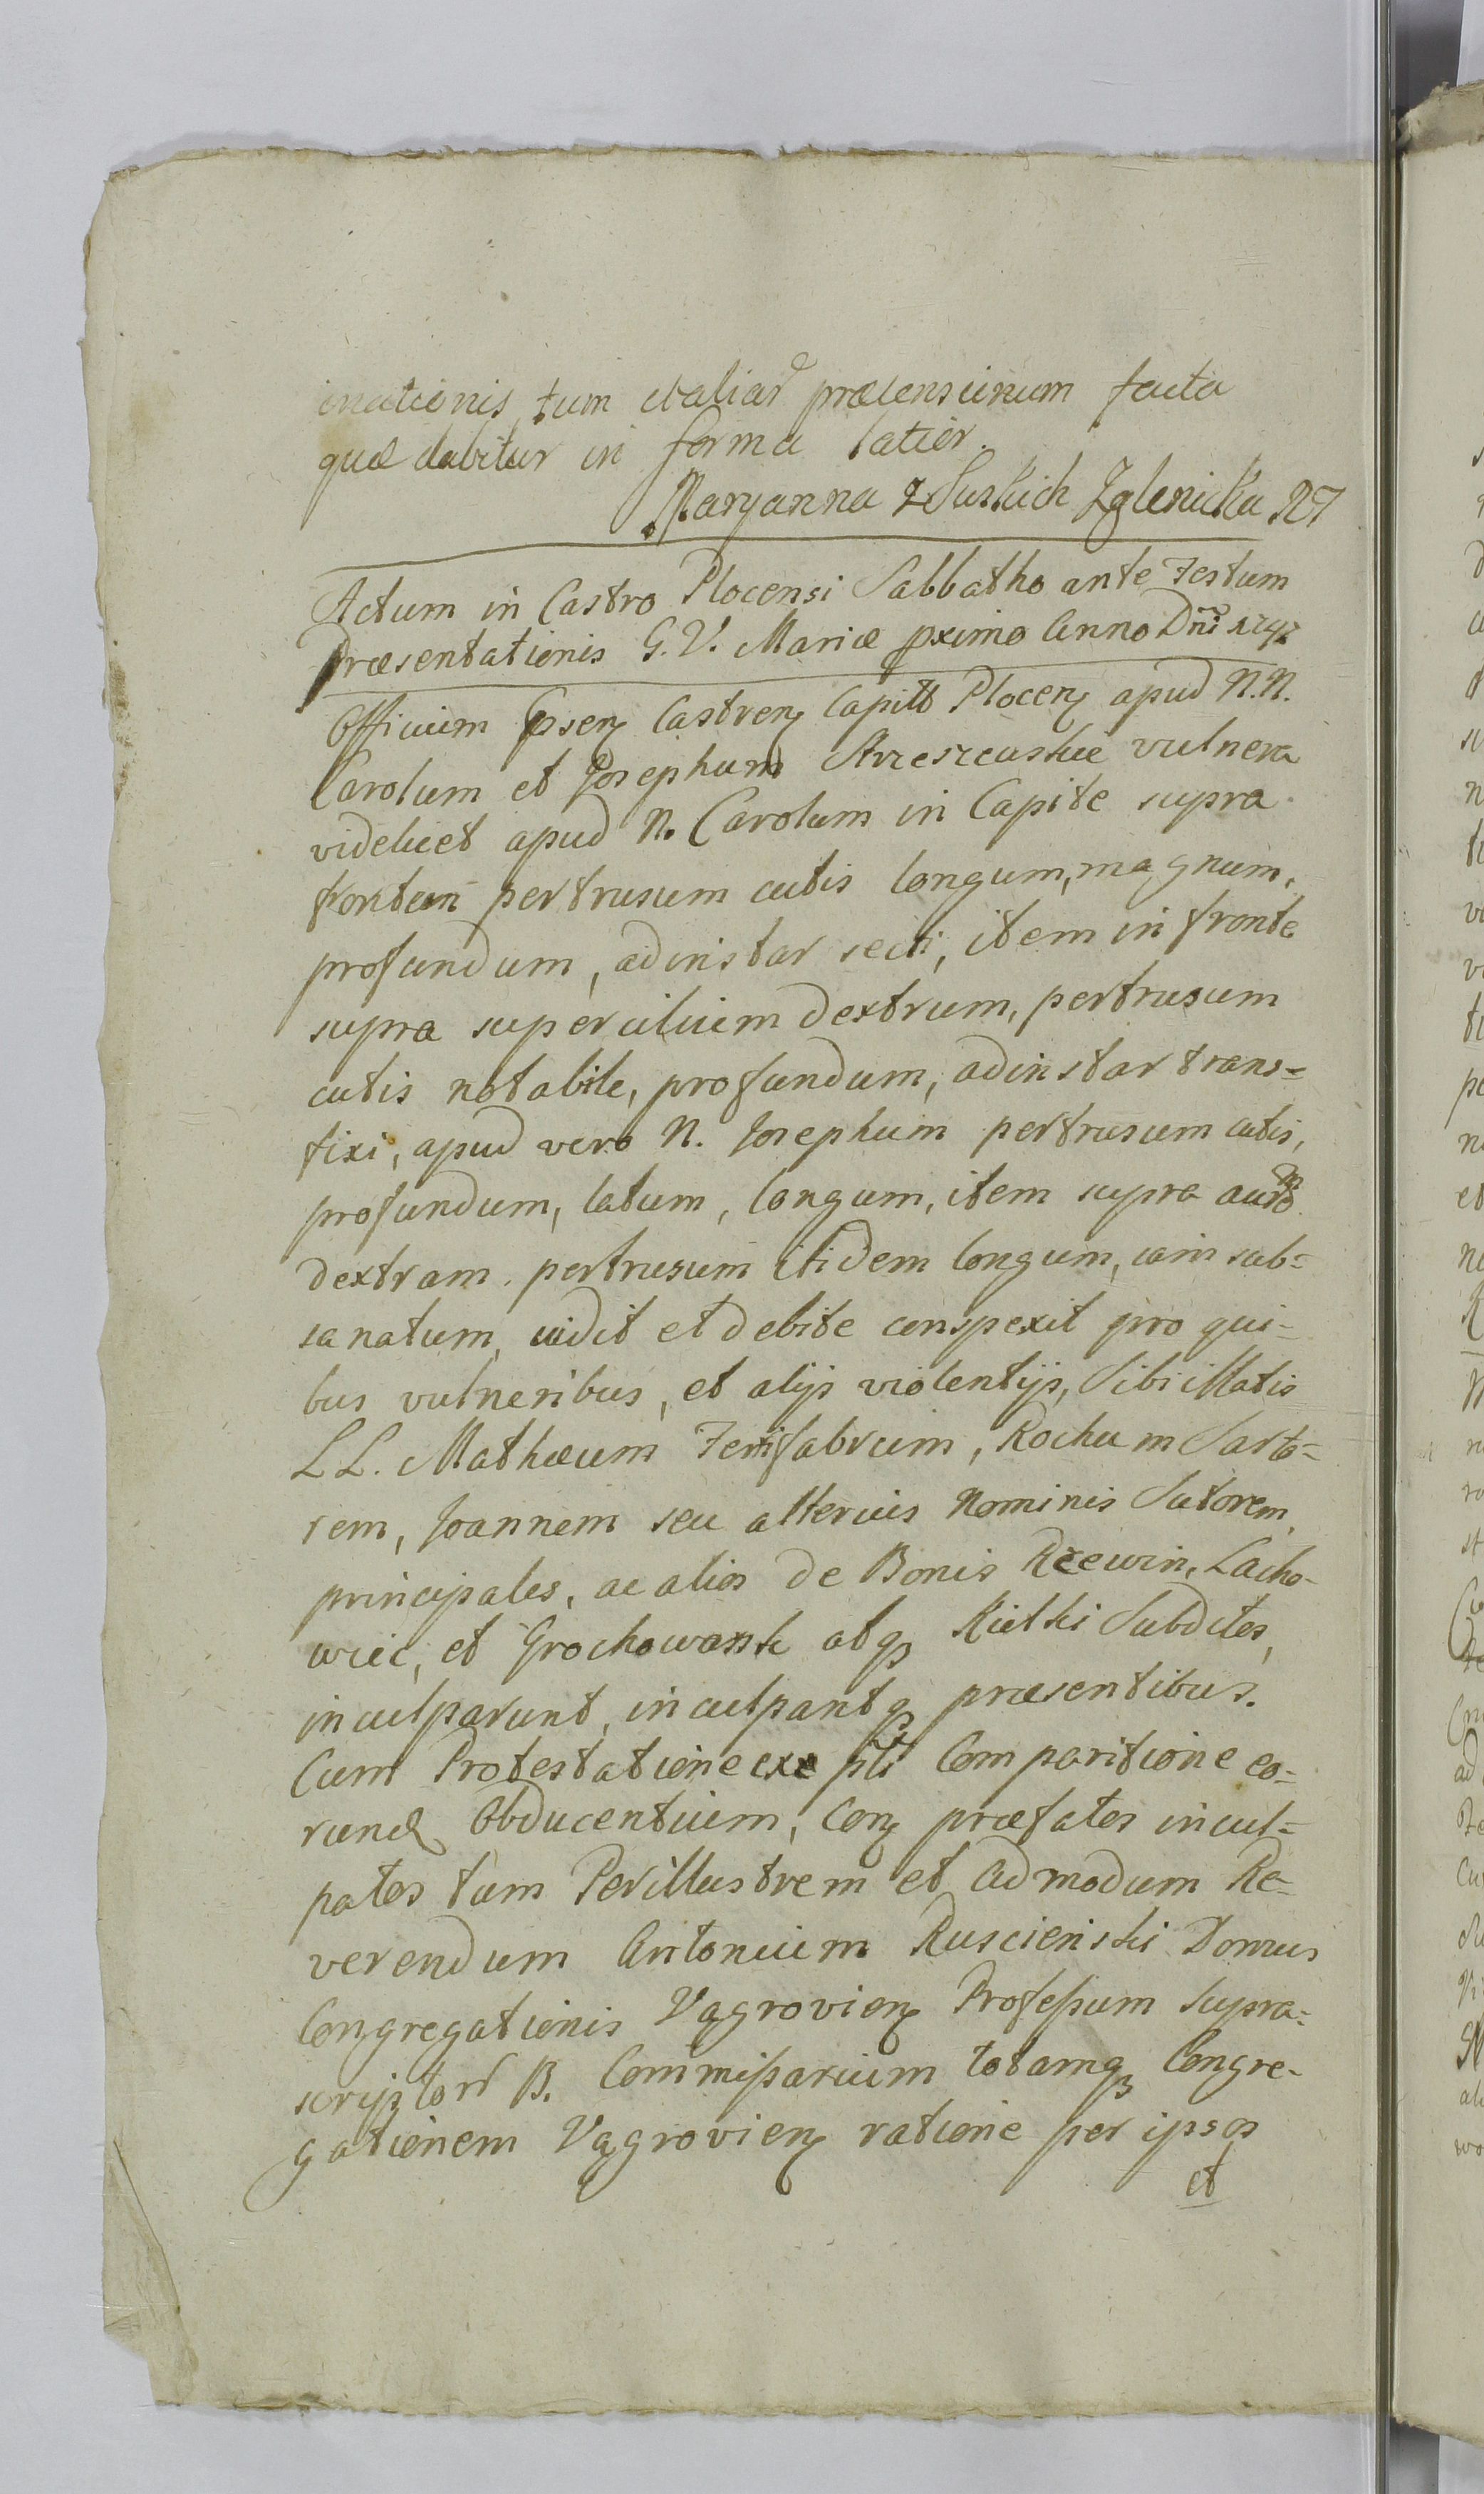 inationis, tum et aliar prætensionum facta
quæ dabitur in forma latior.
Maryanna z Suskich Zglenicka
Actum in Castro Plocensi Sabbatho ante Festum
Præsentationis G. V. Mariæ pximo Anno Dni
Officium psen Castren Capitt Plocen apud N.N.
Carolum et Josephum vulnera
videlicet apud N. Carolum in Capite supra
frontem pertrusum cutis longum, magnum,
profundum, ad instar secti, item in fronte
supra supercilium dextrum, pertrusum
cutis notabile, profundum, ad instar trans=
fixi, apud vero N. Josephum pertrusum cutis,
profundum, latum, longum, item supra aurem
dextram. pertrusum itidem longum, iam sub=
sanatum, vidit et debite conspexit pro qui=
bus vulneribus, et alijs violentijs, Sibi illatis
LL. Mathæum Ferrifabrum, Rochum Sarto=
rem, Joannem seu alterius Nominis Sutorem,
principales, ac alios de Bonis Drewin, Lacho-
wiec, et Grochowarsk atq Kielki Subditos,
inculparunt, inculpantq præsentibus.
Cum Protestatione exe pti Comparitione eo=
rund Obducentium, Con præfatos incul=
patos tum Perillustrem et Admodum Re=
verendum Antonium Ruscienski Domus
Congregationis Vągrovien Professum supra=
scriptor B. Commissarium totamq Congre-
gationem Vągrovien ratione per ipsos
et